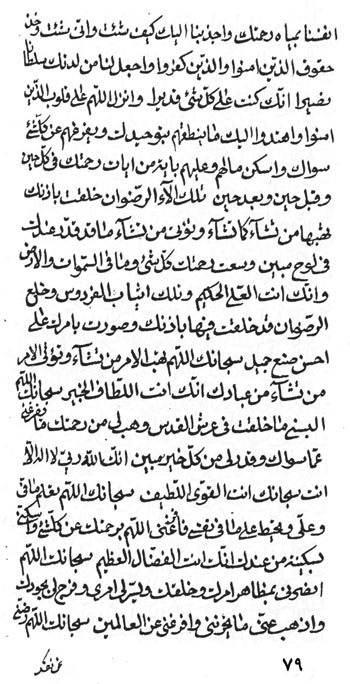 انفسنا بمياه رحمتك واجذبنا اليك كيف شئت وانى شئت وخذ
حقوق الذين امنوا والذين كفروا واجعل لنا من لدنك سلطانا
نصيرا انك كنت على كل شئ قديرا وانزل اللهم على قلوب الذين
امنوا واهتدوا اليك ما ينقطعهم بتوحيدك ويعرفهم عن كل شئ
سواك واسكن مالهم وعليهم باية من ايات رحمتك فى كل حين
وقبل حين وبعد حين تلك الآء الرضوان خلقت باذنك
تهبها من تشآء كما تشآء وتؤتى من تشآء ما قد قدر عندك
فى لوح مبين وسعت رحمتك كل شئ وما فى السموات والارض
وانك انت العلى الحكيم وتلك اثياب الفردوس وخلع
الرضوان قد خلقت فيها باذنك وصورت بامرك على
احسن صنع جميل سبحانك اللهم تهب الامر من تشآء وتؤتى الامر
من تشآء من عبادك انك انت اللطاف الخبير سبحانك اللهم
البسنى ما خلقت فى عرش القدس وهب لى من رحمتك ما تفرغنى
عما سواك وقدر لى من كل خير مبين انك الله ربى لا اله الا
انت سبحانك انت القوى اللطيف سبحانك اللهم تعلم ما فى
وعلى وتحيط علم ما فى نفسى فاغننى اللهم برحمتك عن كل شئ واسكنى
بسكينة من عندك انك انت الفضال العظيم سبحانك اللهم
انصرنى بمظاهر امرك وخلقك ويسر لى امرى وفرج لى بجودك
واذهب عنى ما يحزننى وافرغنى عن العالمين سبحانك اللهم وصنى
٧٩